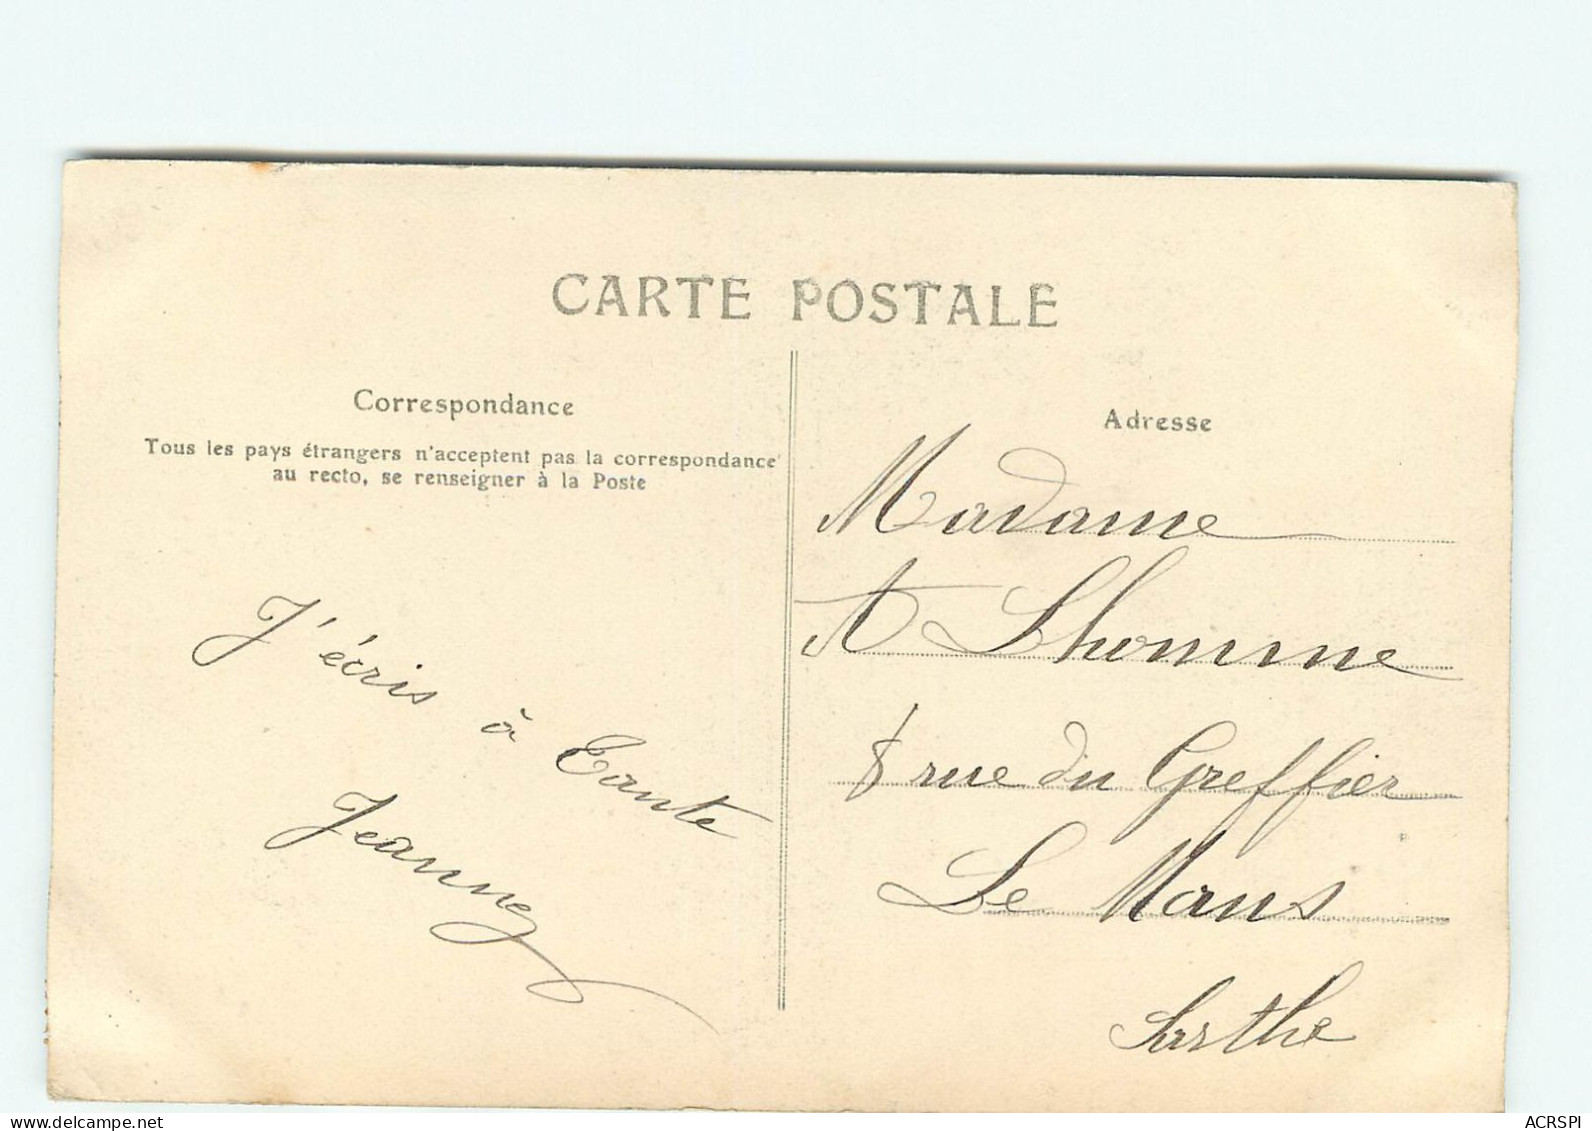 CARTE POSTALE
Correspondance
Tous les pays étrangers n'acceptent pas la correspondance
au recto, se renseigner à la Poste
J'écris à Tante
Jeanne
Adresse
Madame
A Lhomme
8 rue du Greffier
Le Mans
Sarthe
ACRSPI
www.delcampe.net